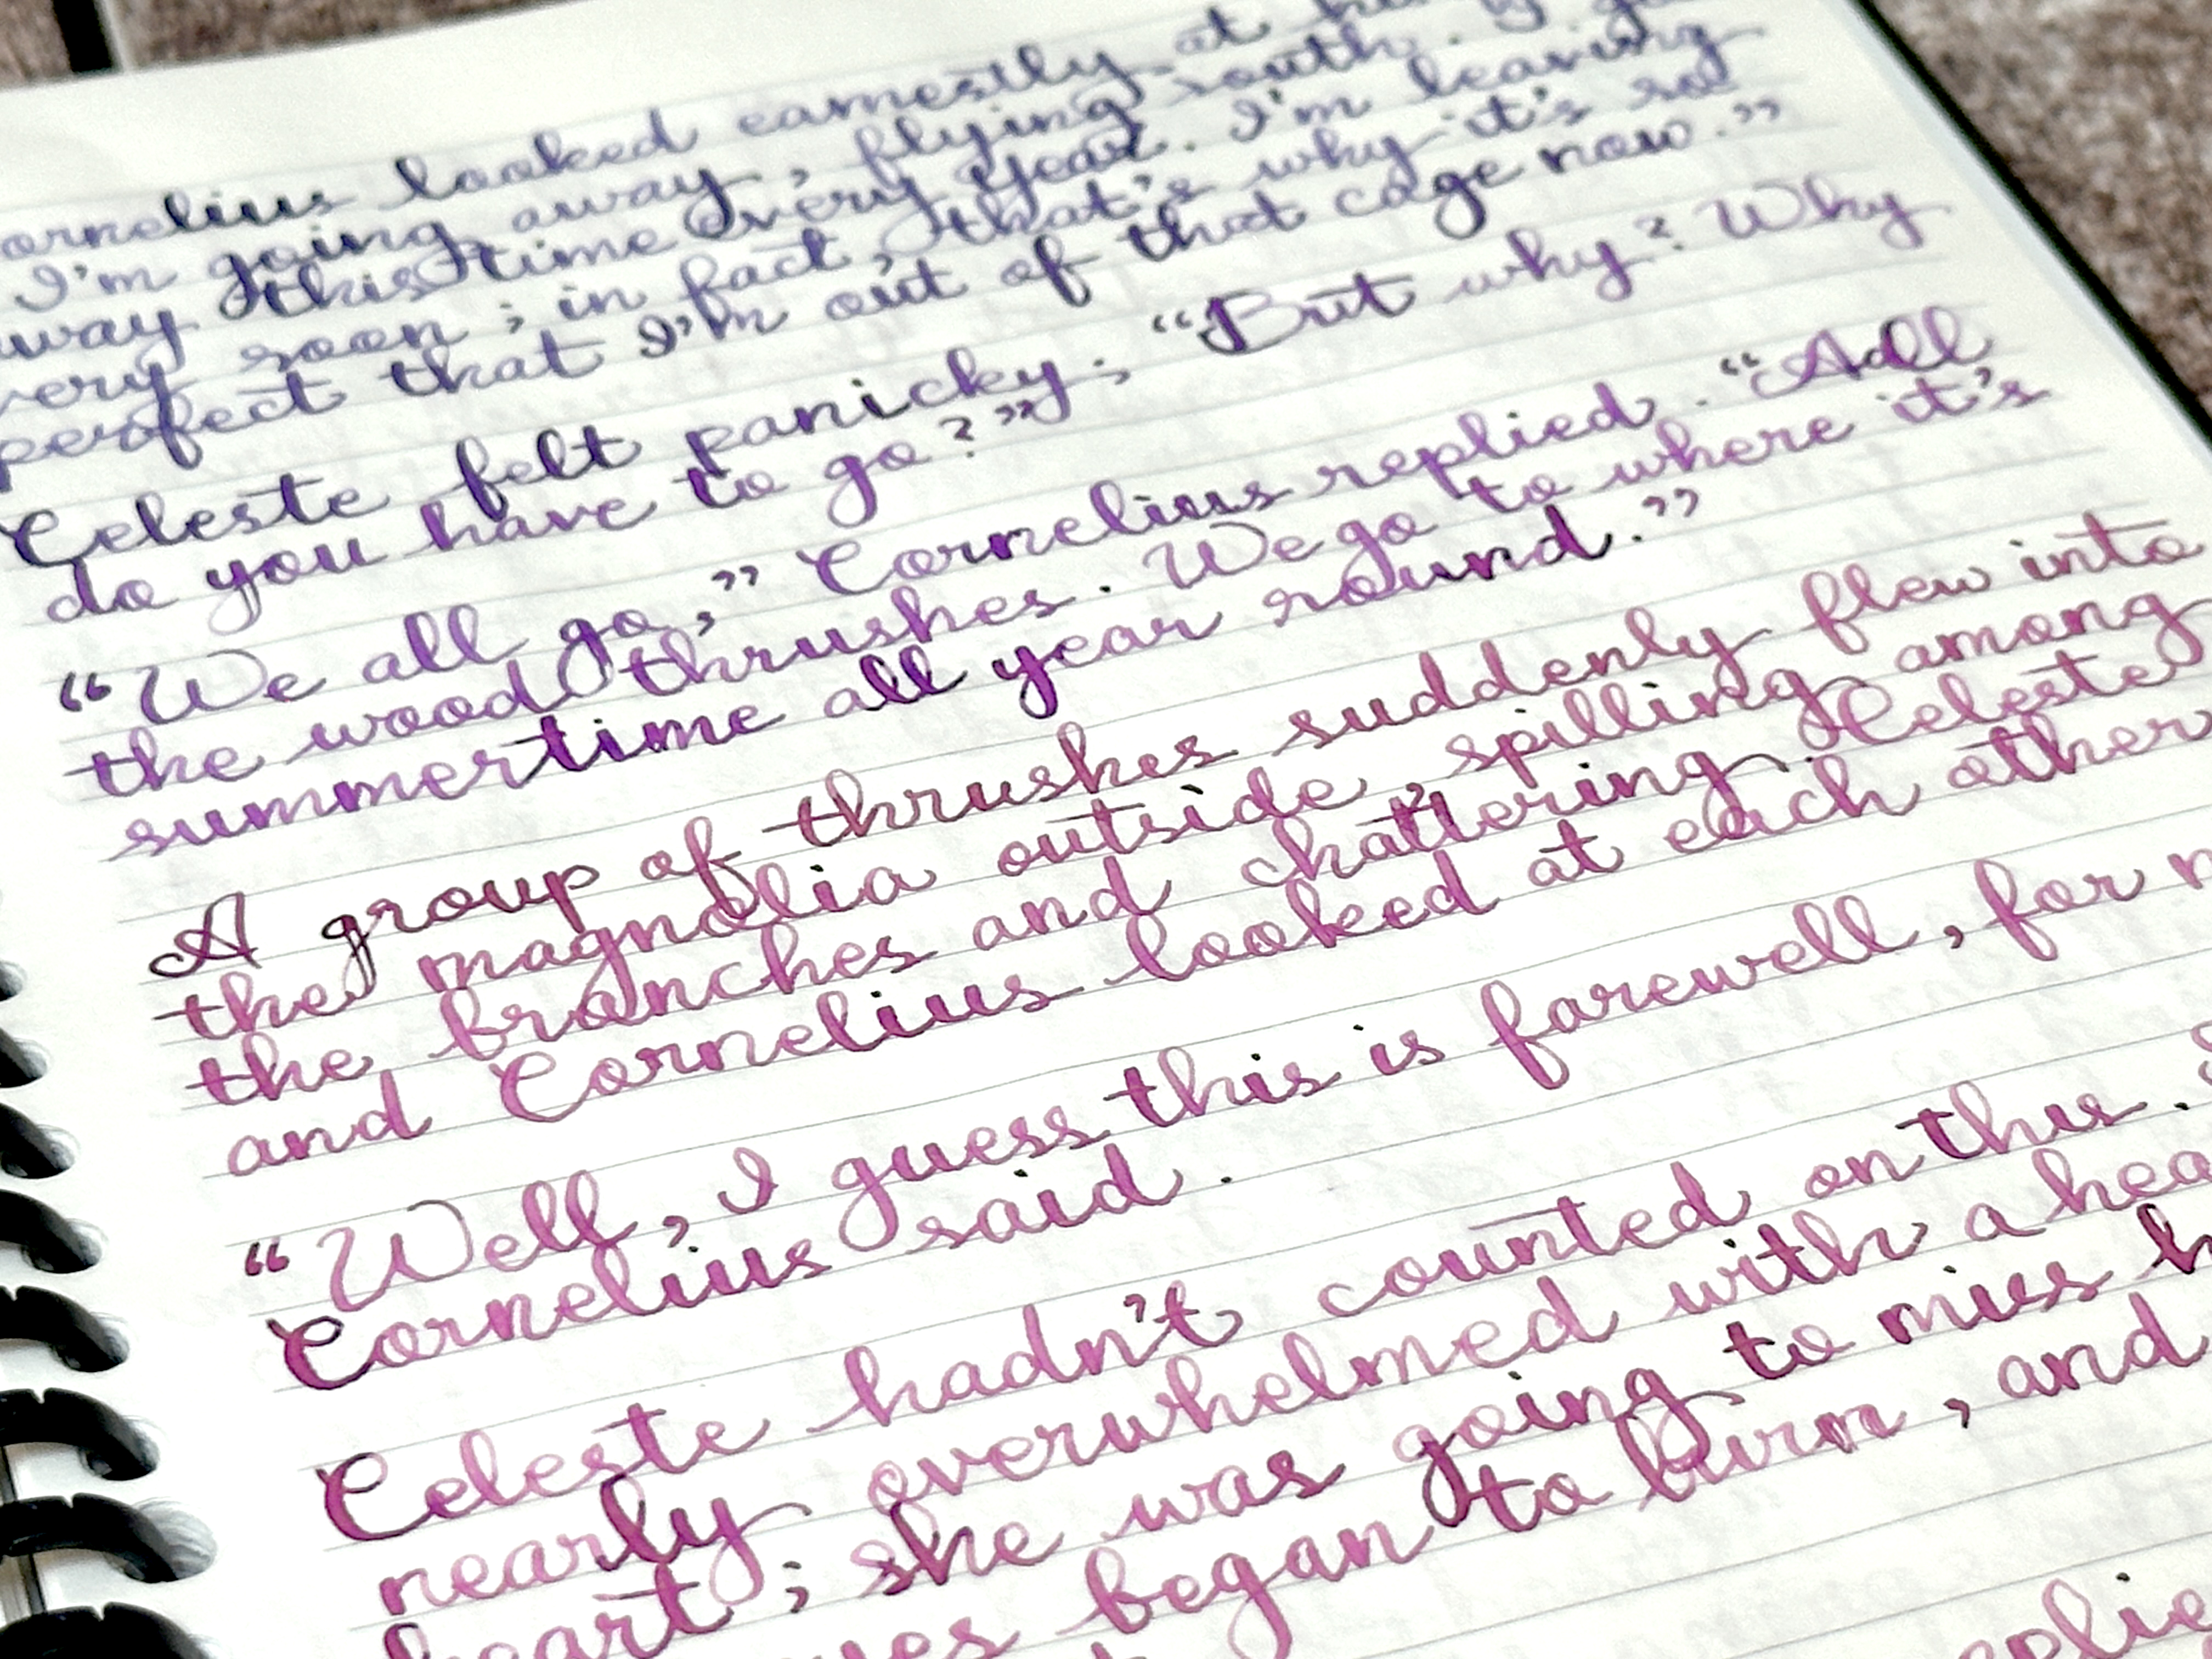 ornelius looked earnestly at
I'm going away, flying south.
way this time every year. I'm leaving
very soon; in fact, that's why it's so
perfect that I'm out of that cage now."
Celeste felt panicky; "But why? Why
do you have to go?"
"We all go," Cornelius replied. "All
the wood thrushes. We go to where it's
summertime all year round."
A group of thrushes suddenly flew into
the magnolia outside, spilling among
the branches and chattering. Celeste
and Cornelius looked at each other
"Well, I guess this is farewell, for n
Cornelius said.
Celeste hadn't counted on this.
nearly overwhelmed with a hea
heart; she was going to miss h
yes began to burn, and
eplie